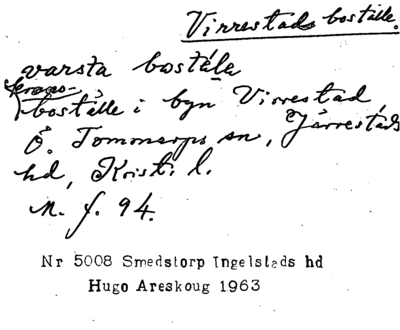 Virrestads boställe.
varsta boställe
Svens-
boställe i byn Virrestad,
Ö. Tommarps sn, Järrestads
hd, Krist. l.
M. f. 94.
Nr 5008 Smedstorp Ingelstads hd
Hugo Areskoug 1963